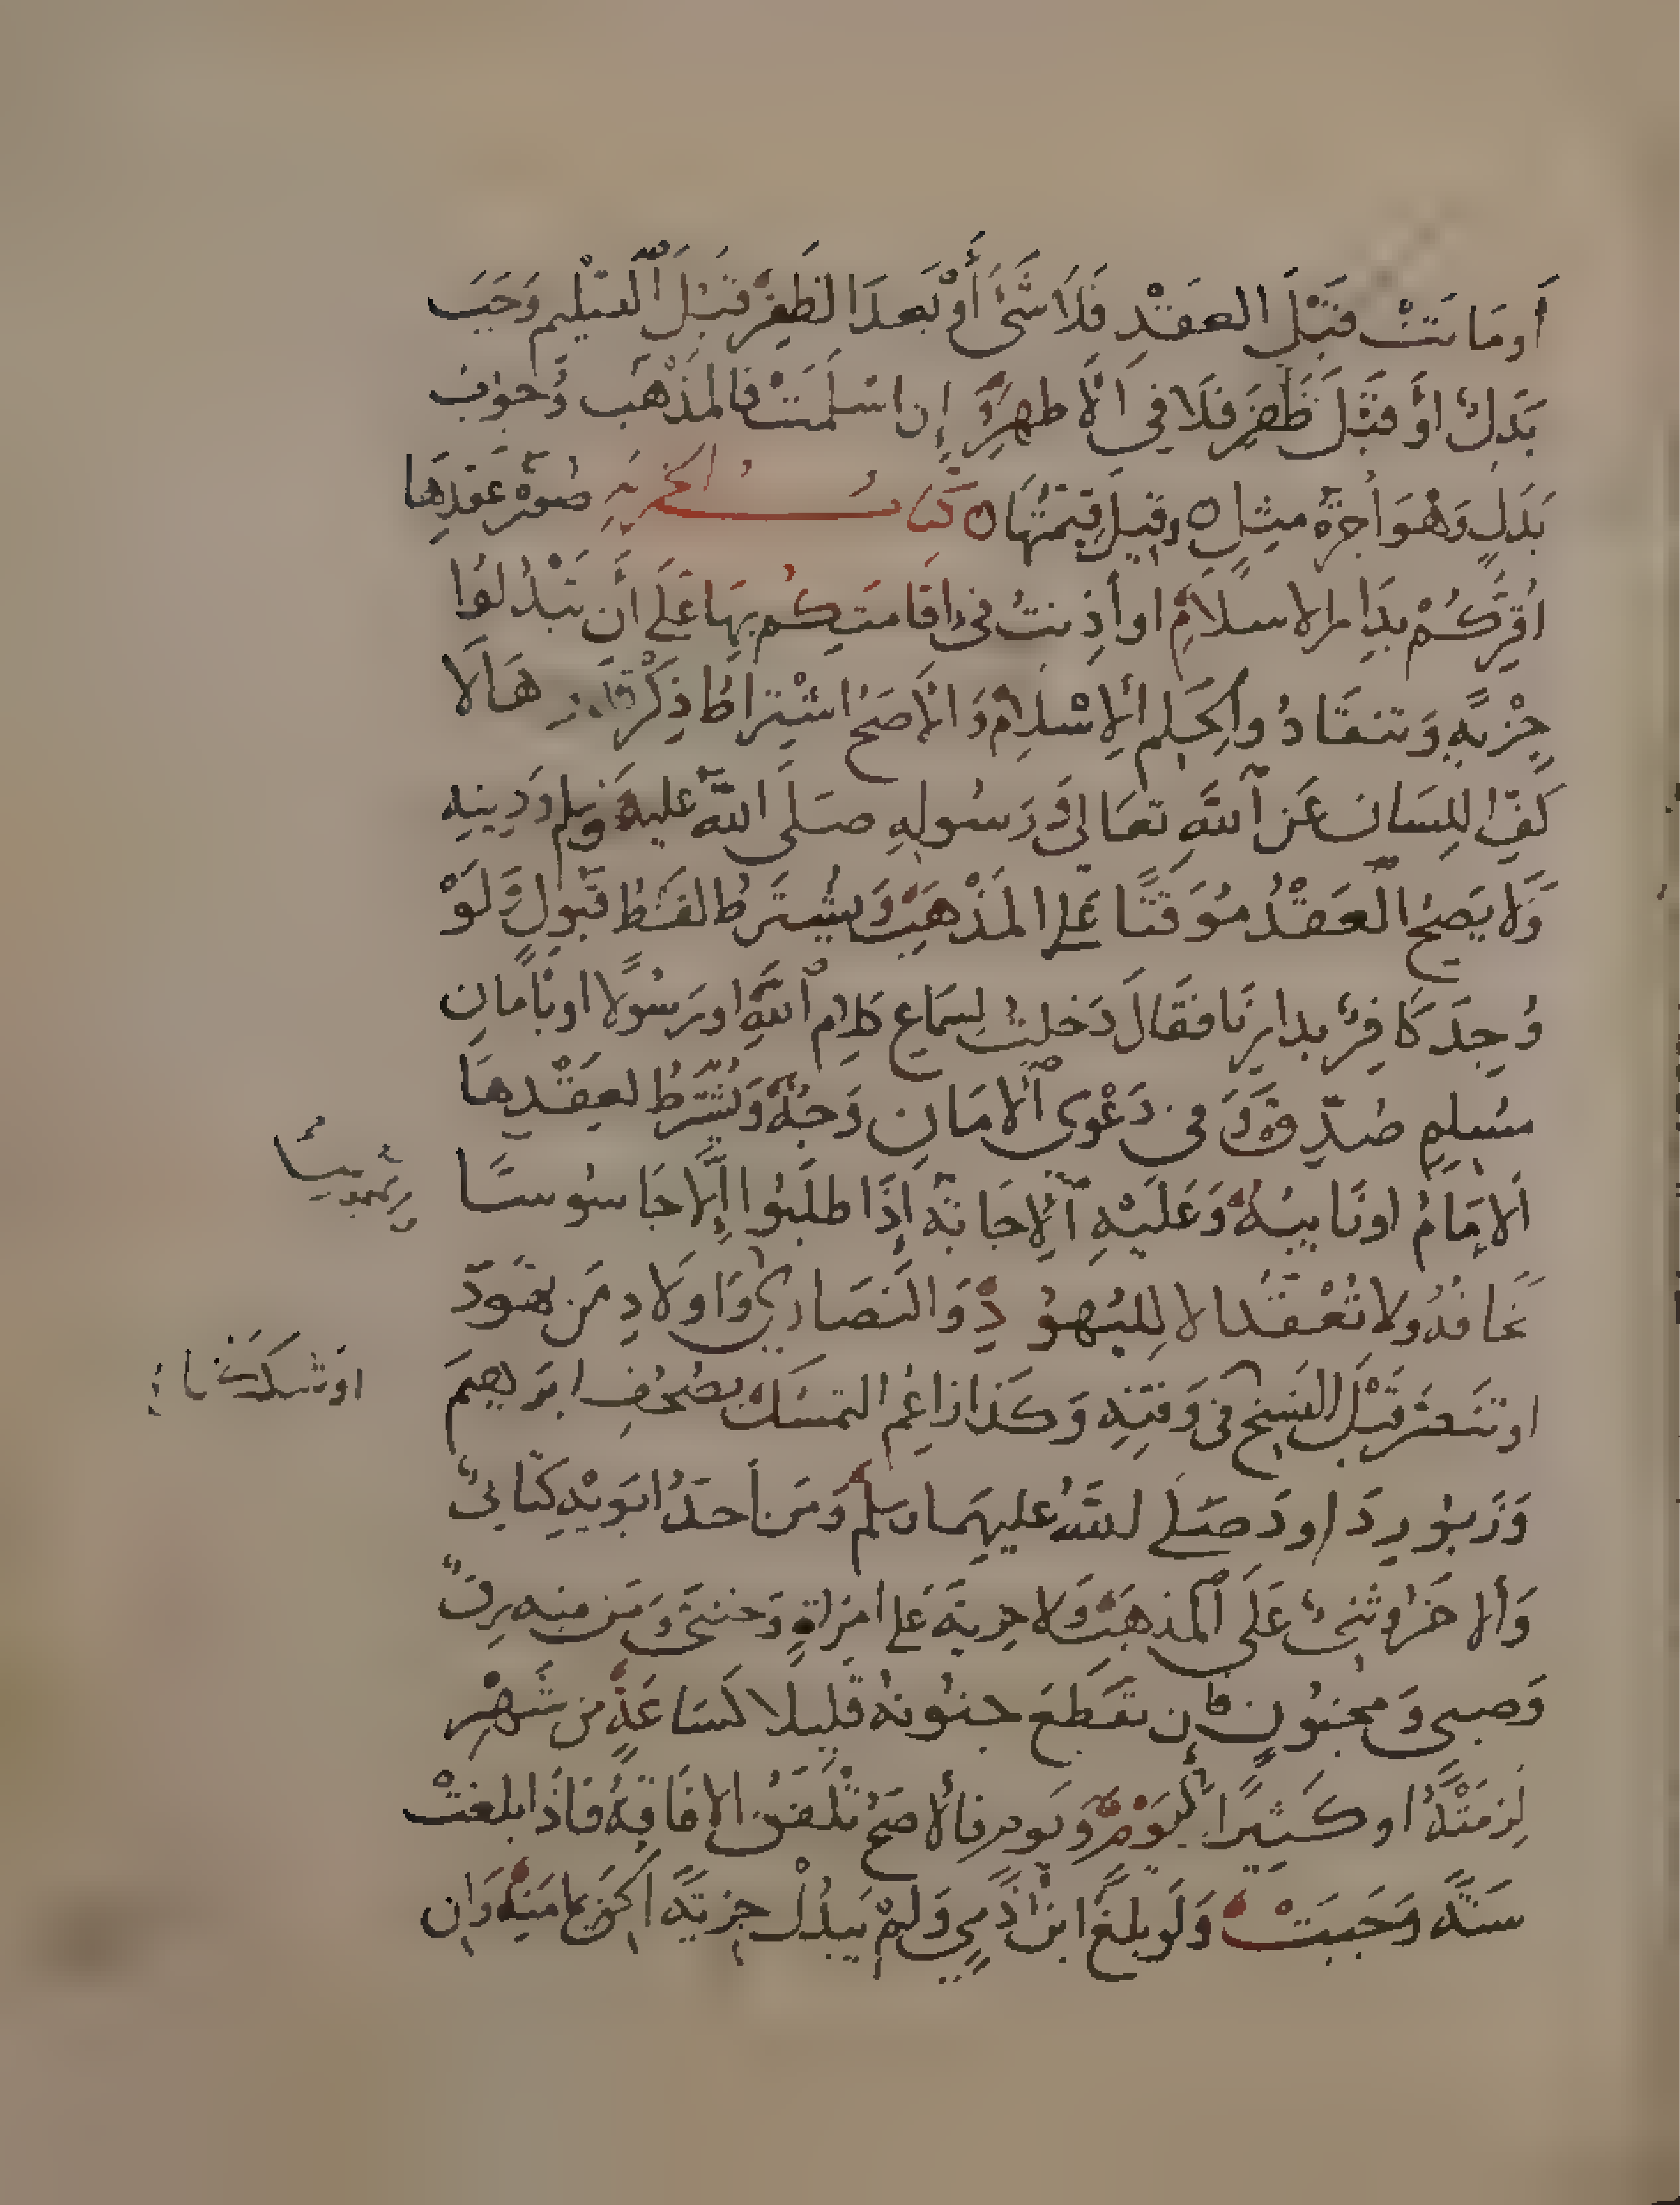 أو ماتت قبل العقد فلا شئ أو بعد الظفر قبل التسليم وجب
بدل أو قبل ظفر فلا في الأظهر وإن أسلمت فالمذهب وجوب
بدل وهو أجرة مثل وقيل قيمتها كتاب الجزية صورة عقدها
أقركم بدار الإسلام أو أذنت في إقامتكم بها على أن تبذلوا
جزية وتنقادوا لحكم الإسلام والأصح اشتراط ذكر قدرها لا
كف اللسان عن الله تعالى ورسوله صلى الله عليه وسلم ودينه
ولا يصح العقد موقتا على المذهب ويشترط لفظ قبول ولو
وجد كافر بدارنا فقال دخلت لسماع كلام الله أو رسولا أو بأمان
مسلم صدق وفي دعوى الأمان وجه ويشترط لعقدها
الإمام أو نايبه وعليه الإجابة إذا طلبوا إلا جاسوسا
نخافه ولا تعقد إلا لليهود والنصارى وأولاد من تهود
أو تنصر قبل النسخ في وقته وكذا زاعم التمسك بصحف ابرهيم
وزبور داود صلى الله عليهما وسلم ومن أحد أبويه كتابي
والآخر وثني على المذهب ولا جزية على امرأة وخنثى ومن فيه رق
وصبي ومجنون فإن تقطع جنونه قليلا كساعة من شهر
لزمته أو كثيرا كيوم ويوم فالأصح تلفق الإفاقة فإذا بلغت
سنة وجبت ولو بلغ ابن ذمي ولم يبذل جزية ألحق بمأمنه وإن
أو شككنا